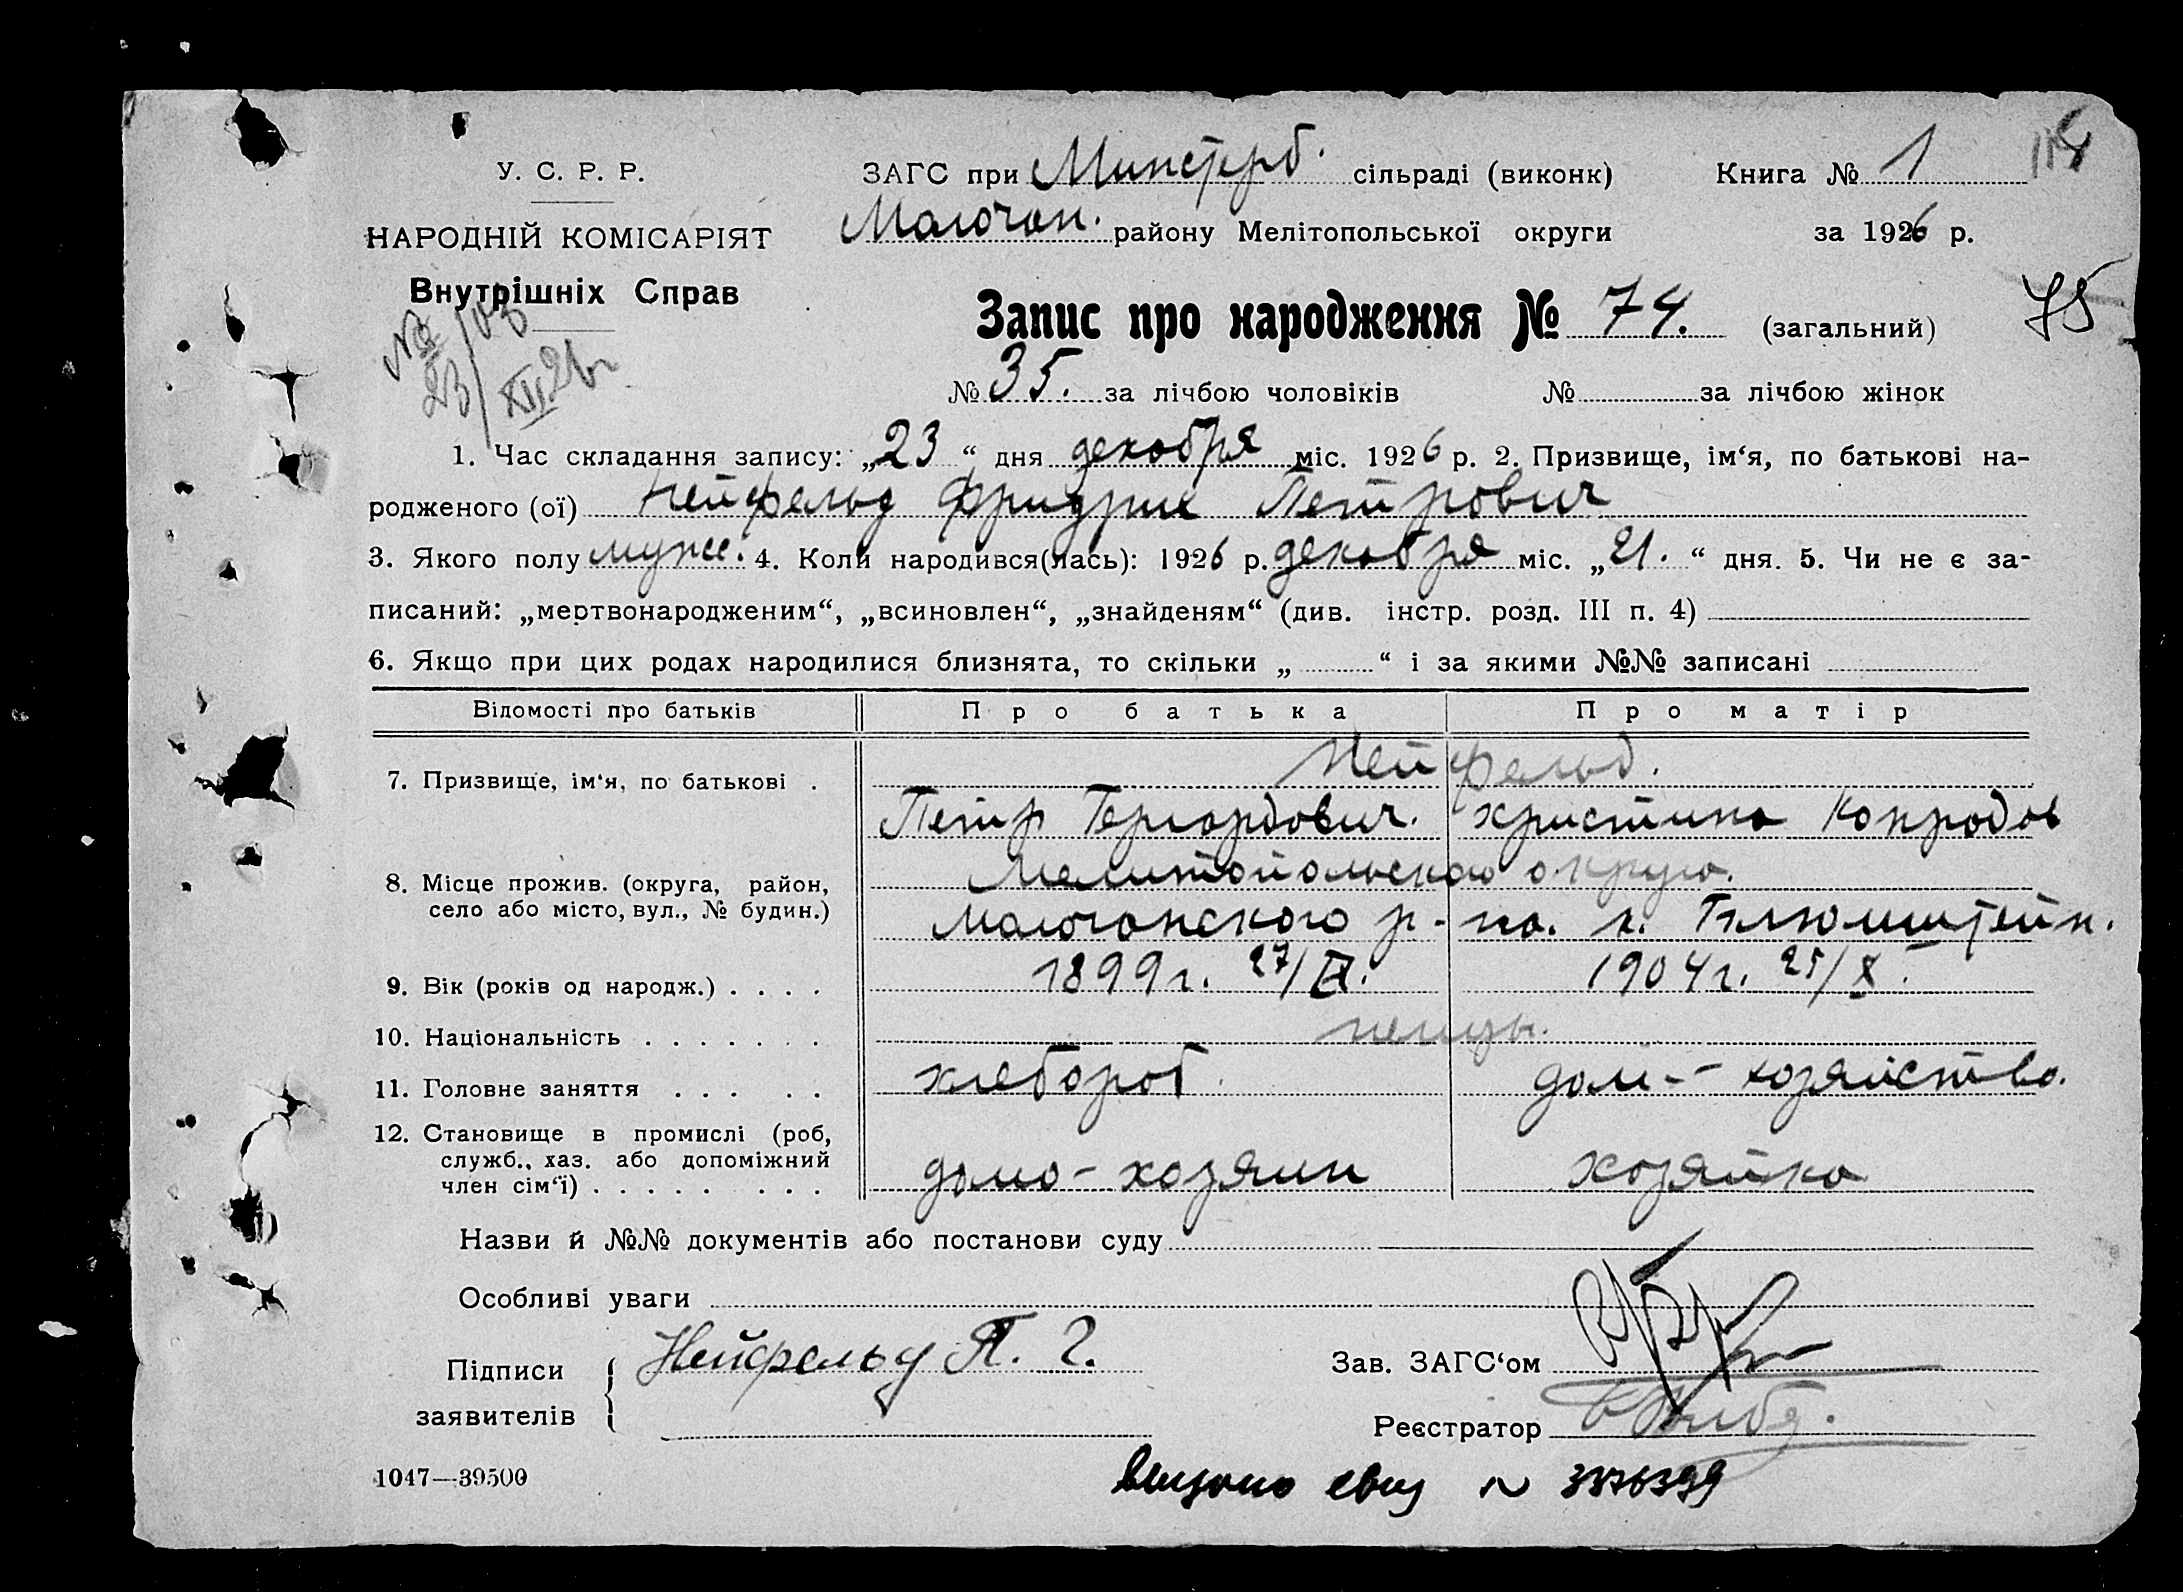 У. С. Р. Р.
НАРОДНІЙ КОМІСАРІЯТ
Внутрішніх Справ
№ 103
23/XII 26 г
ЗАГС при Минстерб. сільраді (виконк)
Молочан. району Мелітопольської округи
Книга № 1
за 1926 р.
75
Запис про народження № 74. (загальний)
№ 35. за лічбою чоловіків № за лічбою жінок
1. Час складання запису: „23“ дня декабря міс. 1926 р. 2. Призвище, ім‘я, по батькові на-
родженого (ої) Нейфельд Фридрих Петрович
3. Якого полу муж. 4. Коли народився(лась): 1926 р. декабря міс. „21.“ дня. 5. Чи не є за-
писаний: „мертвонародженим“, „всиновлен“, „знайденям“ (див. інстр. розд. III п. 4)
6. Якщо при цих родах народилися близнята, то скільки „ “ і за якими №№ записані
Відомості про батьків Про батька Про матір
7. Призвище, ім‘я, по батькові . Нейфельд.
Петр Гергардович. Христина Конродов
8. Місце прожив. (округа, район, Мелитопольского округа.
село або місто, вул., № будин.) Молочанского р-на. к. Блюмштейн.
9. Вік (років од народж.) . . . . 1899 г. 27/ 1904 г. 25/X.
10. Національність . . . . . . . немцы.
11. Головне заняття . . . . . хлебороб дом-хозяйство.
12. Становище в промислі (роб,
служб., хаз. або допоміжний
член сім‘ї) . . . . . . . . домо-хозяин хозяйка
Назви й №№ документів або постанови суду
Особливі уваги
Підписи
заявителів
Нейфельд П. Г.
Зав. ЗАГС‘ом
Реєстратор
1047—39500
выдано свид N 3376399